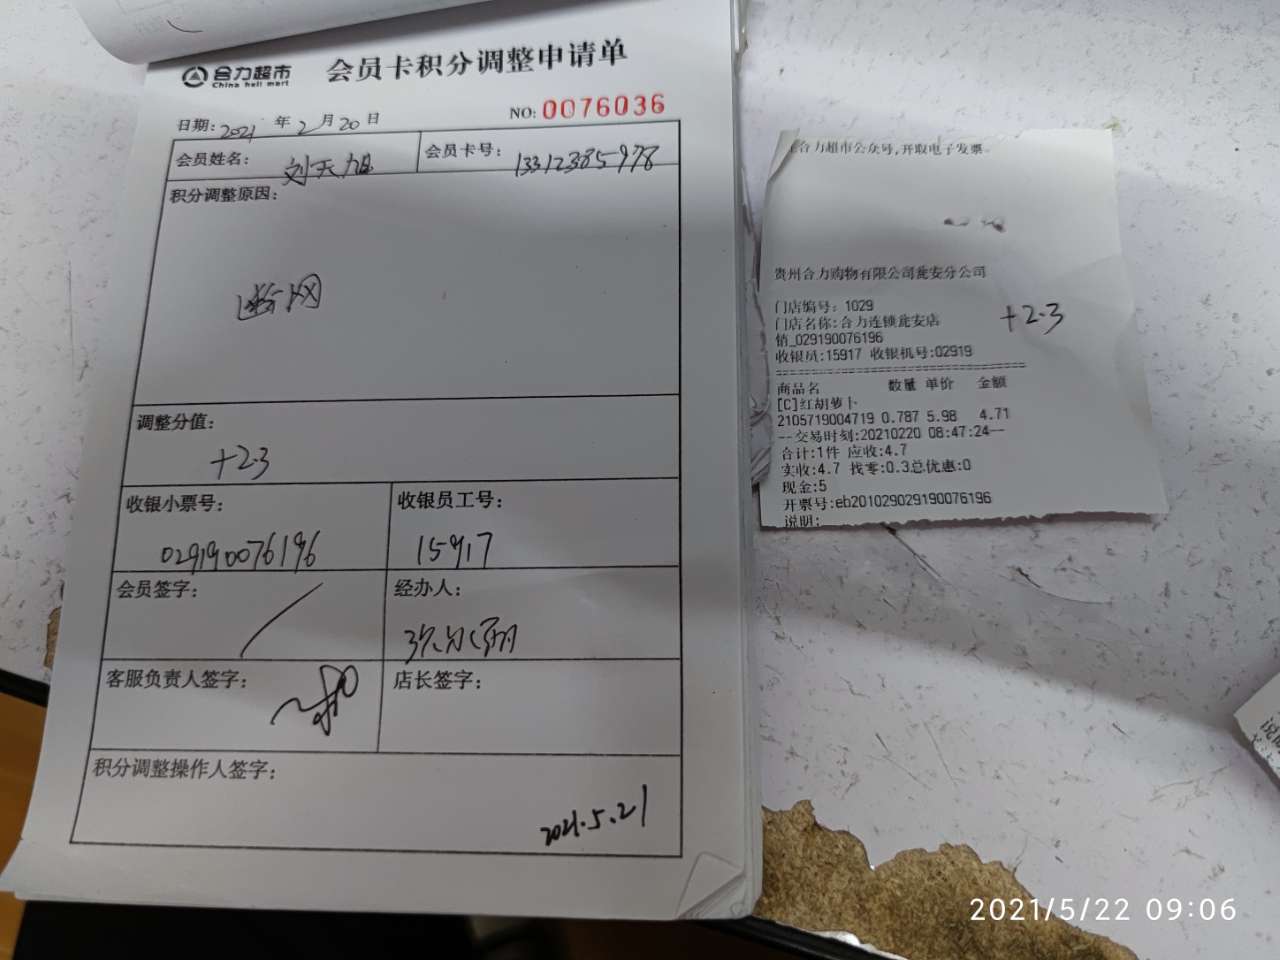 合力超市
China heli mart
会员卡积分调整申请单
日期: 2021 年 2 月 20 日
NO: 0076036
会员姓名: 刘天旭
会员卡号: 13312385978
积分调整原因:
断网
调整分值:
+2.3
收银小票号:
029190076196
收银员工号:
15917
会员签字:
经办人:
客服负责人签字:
店长签字:
积分调整操作人签字:
2021.5.21
合力超市公众号,开取电子发票
贵州合力购物有限公司瓮安分公司
门店编号: 1029
门店名称:合力连锁瓮安店
+2.3
销_029190076196
收银员:15917 收银机号:02919
商品名 数量 单价 金额
[C]红胡萝卜
2105719004719 0.787 5.98 4.71
--交易时刻:20210220 08:47:24--
合计:1件 应收:4.7
实收:4.7 找零:0.3总优惠:0
现金:5
开票号:eb201029029190076196
说明:
2021/5/22 09:06